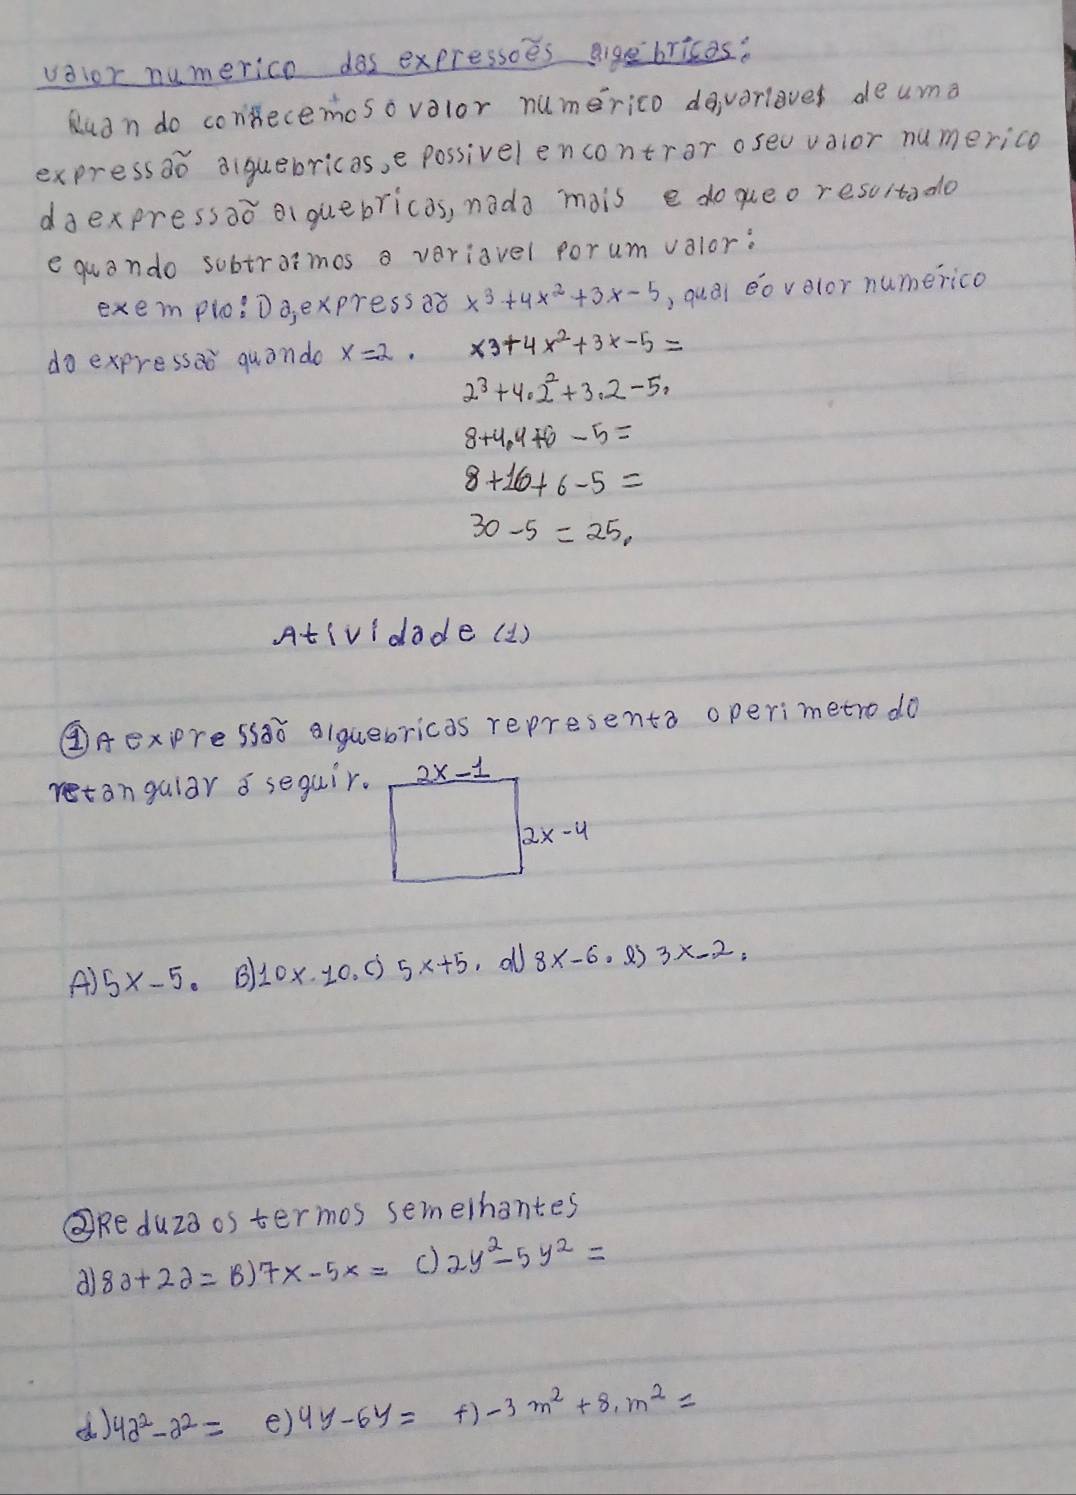 valor numerico das expressoẽs algébricas:
Quando conhecemos o valor numérico da, variaves de uma
expressaõ alguebricas, e possivel encontrar o seu valor numerico
da expressaõ alguebricas, nada mais e do que o resultado
e quando subtraimos a variavel por um valor:
exemplo: Da, expressaõ x³+4x²+3x-5, qual éo valor numérico
da expressaõ quando x=2. x3+4x²+3x-5=
2³+4.2²+3.2-5.
8+4.4+6-5=
8+16+6-5=
30-5=25.
Atividade (1)
① A expressaõ alguebricas representa o perimetro do
retangular á seguir. 2x-1
2x-4
A) 5x-5. B) 10x-10. c) 5x+5. d) 8x-6. e) 3x-2.
② Reduza os termos semelhantes
a) 8a+2a= B) 7x-5x= c) 2y²-5y²=
d) 4a²-a²= e) 4y-6y= f) -3m²+8.m²=